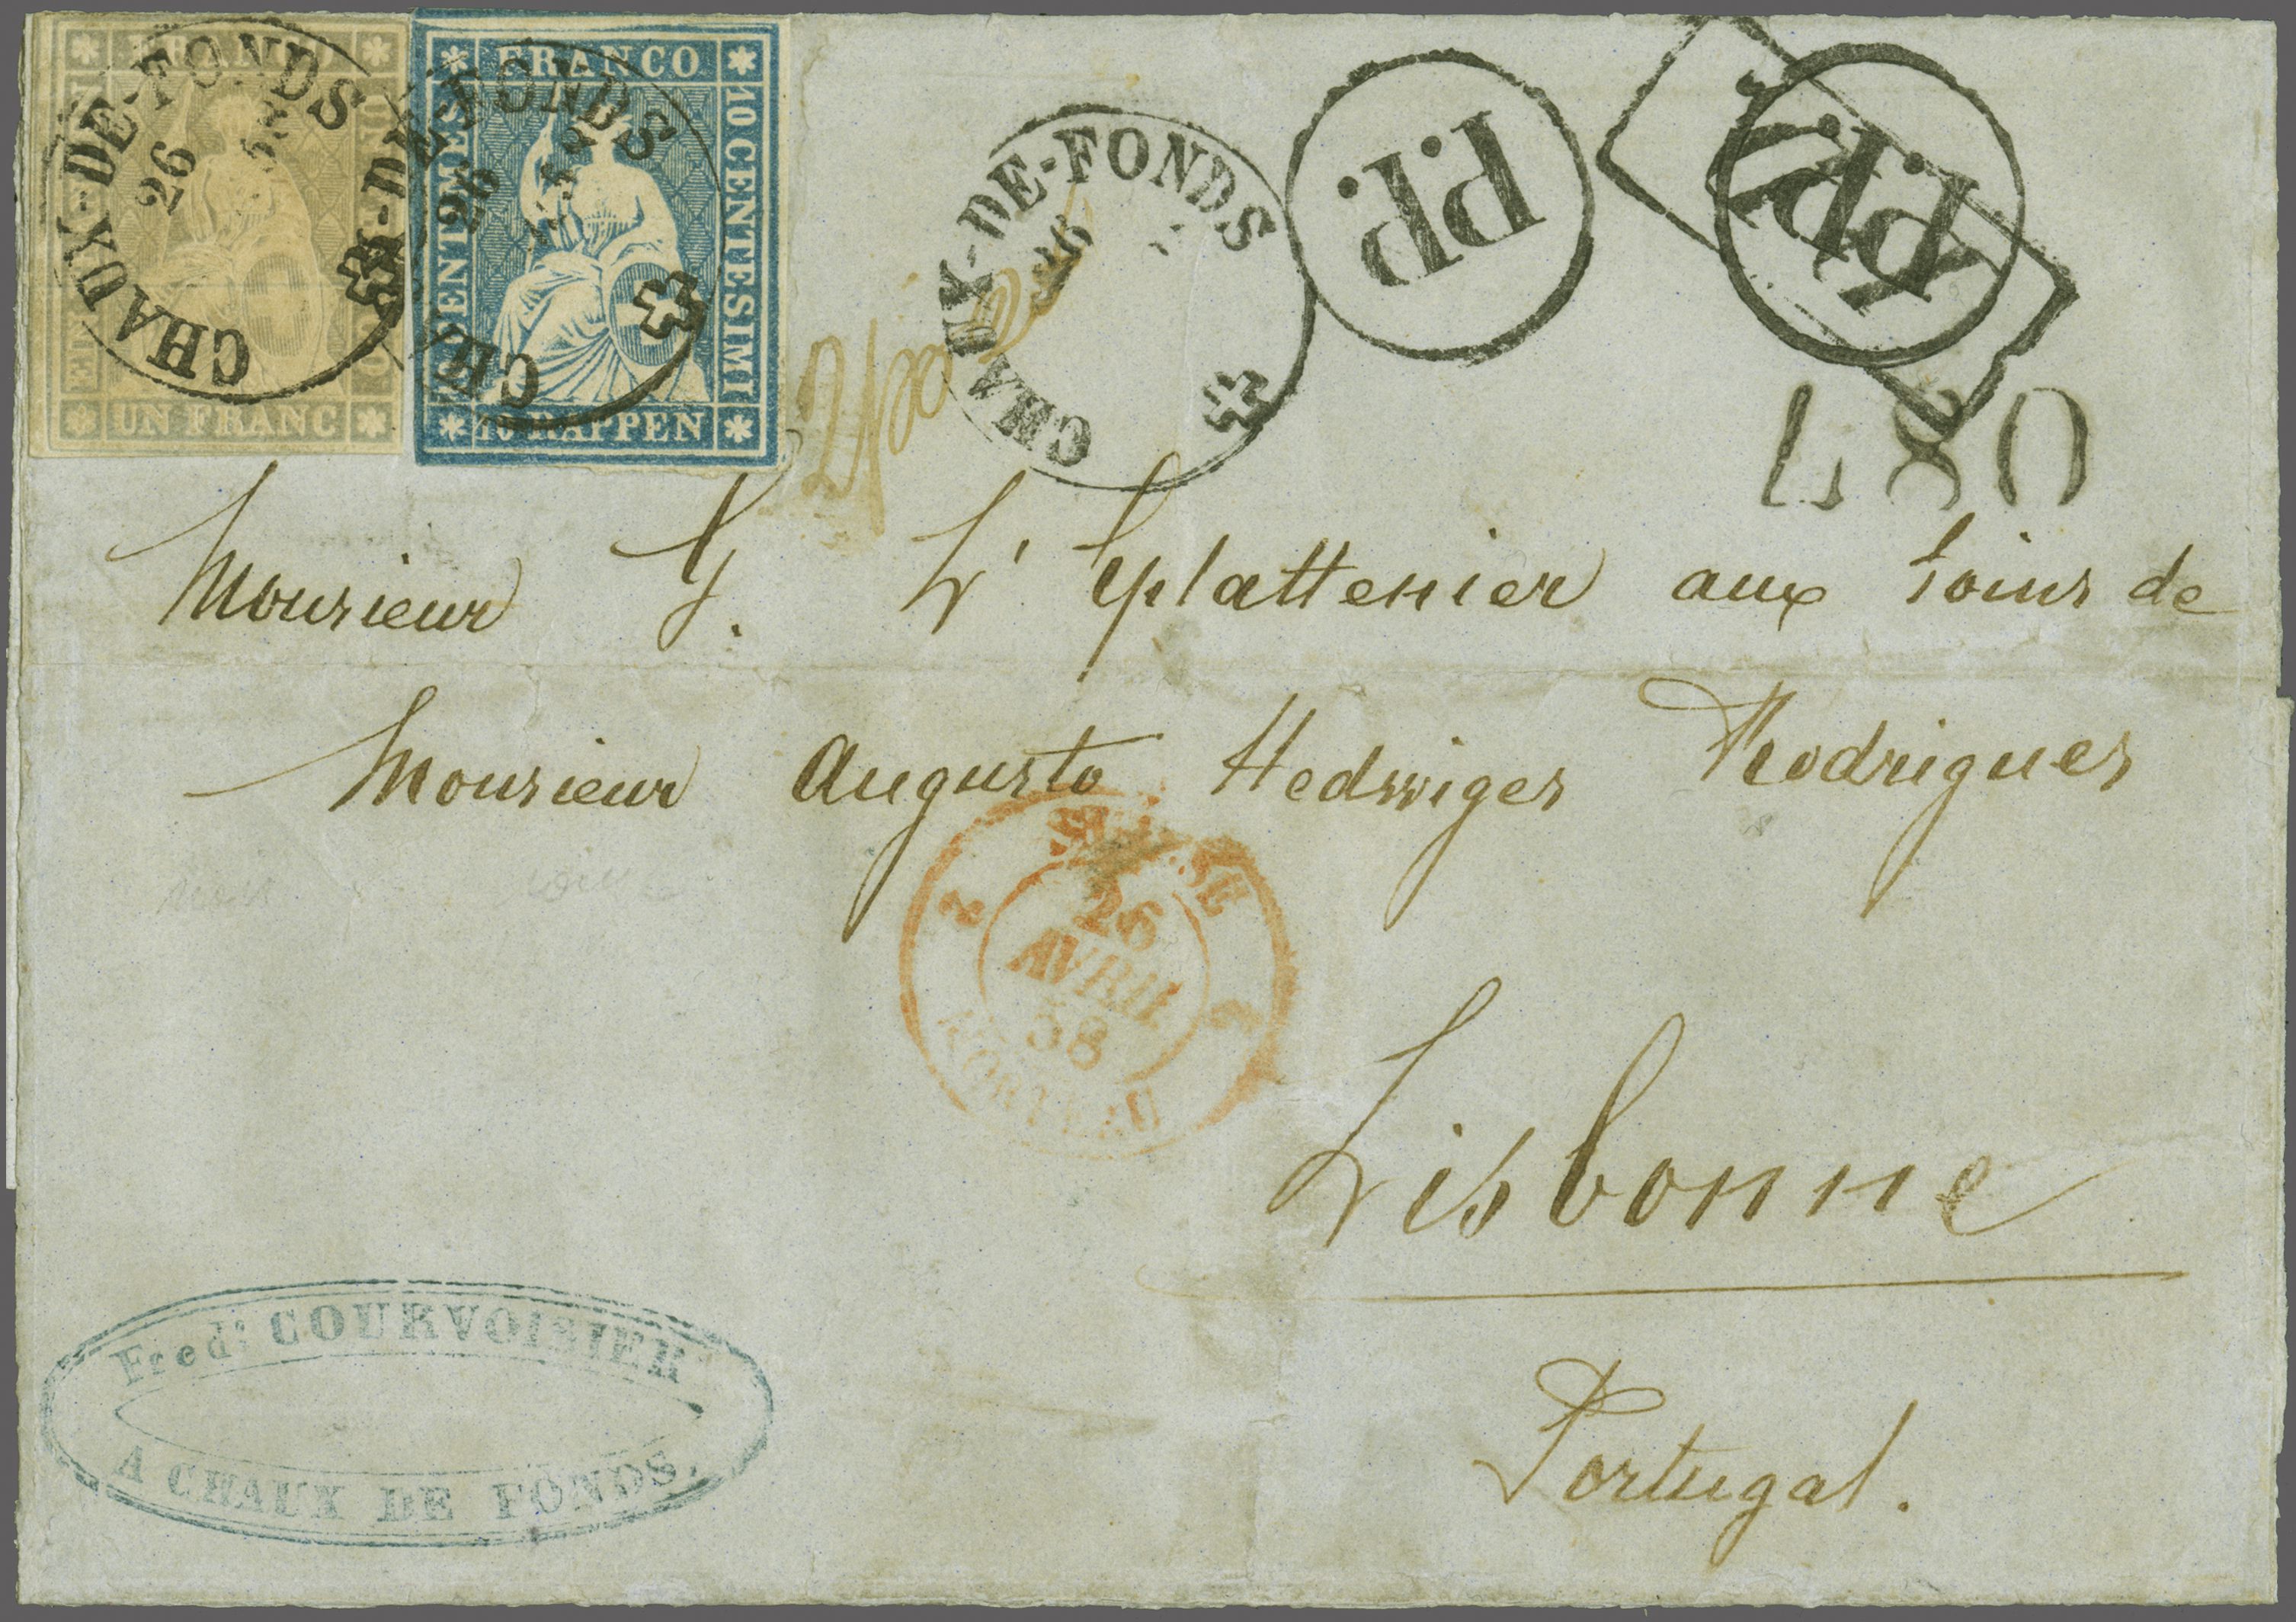 FRANCO
UN FRANC
FRANCO
10 CENTESIMI
10 RAPPEN
CHAUX-DE-FONDS
26
CHAUX-DE-FONDS
26
CHAUX-DE-FONDS
26
P.P.
P.P.
180
Monsieur G. L'Eplattenier aux soins de
Monsieur Augusto Hedwiges Rodrigues
SUISSE
2 2
26
AVRIL
58
PONTARLIER
Lisbonne
Portugal.
Fred: COURVOISIER
A CHAUX DE FONDS.